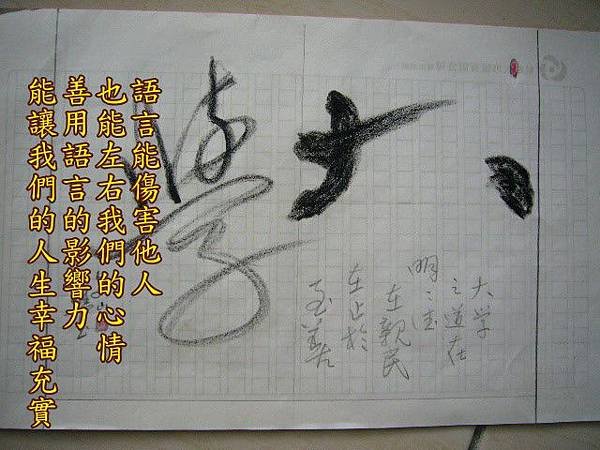 大學
大学
之道在
明々德
在親民
在止於
至善
語言能傷害他人
也能左右我們的心情
善用語言的影響力
能讓我們的人生幸福充實